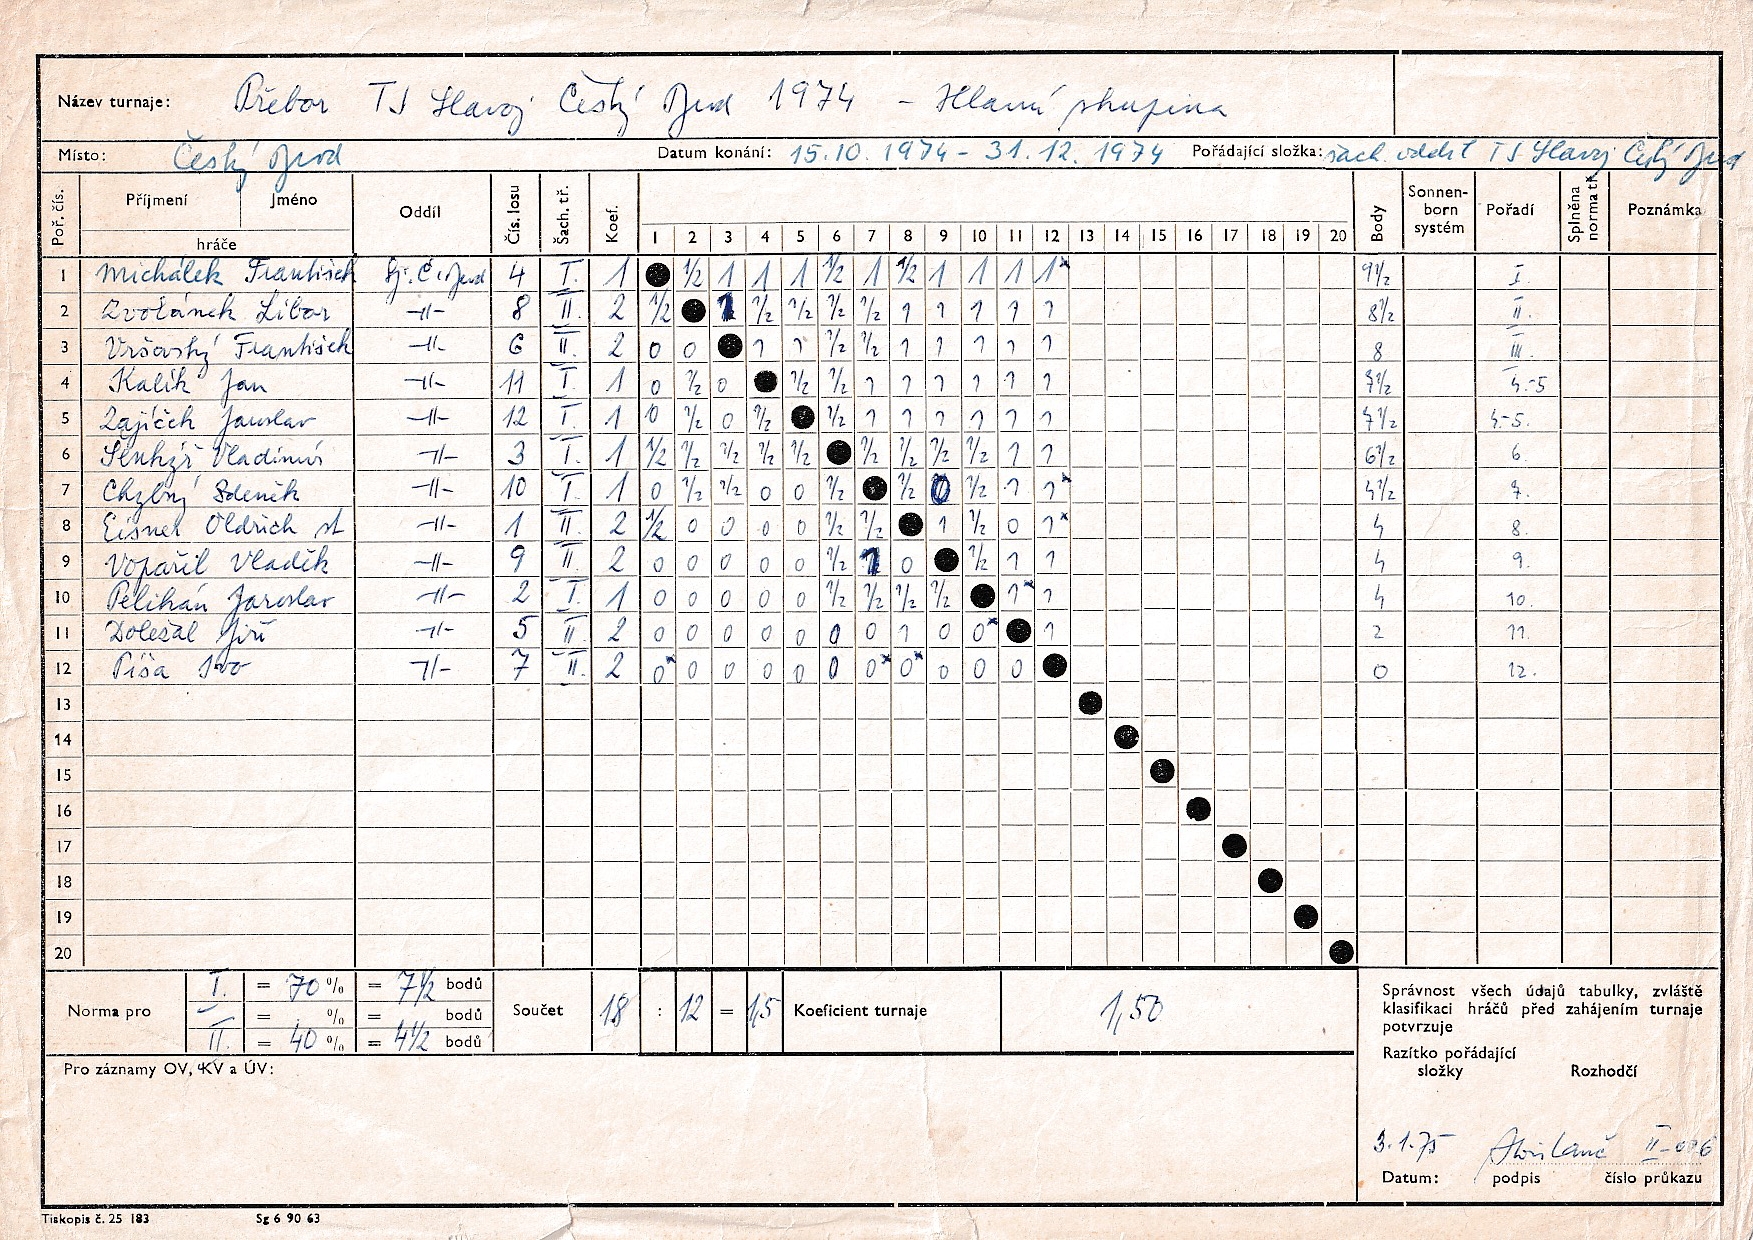 Název turnaje: Přebor TJ Slavoj Český Brod 1974 - Hlavní skupina
Místo: Český Brod Datum konání: 15.10.1974 - 31.12.1974 Pořádající složka: šach. oddíl TJ Slavoj Český Brod
Poř. čís. Příjmení Jméno hráče Oddíl Čís. losu Šach. tř. Koef. 1 2 3 4 5 6 7 8 9 10 11 12 13 14 15 16 17 18 19 20 Body Sonnen-born systém Pořadí Splněna norma tř. Poznámka
1 Michálek František Sj. Č. Brod 4 I. 1 ● 1/2 1 1 1 1/2 1 1/2 1 1 1 1* 9 1/2 I.
2 Zvolánek Libor -||- 8 II. 2 1/2 ● 1 1/2 1/2 1/2 1/2 1 1 1 1 1 8 1/2 II.
3 Vršovský František -||- 6 II. 2 0 0 ● 1 1 1/2 1/2 1 1 1 1 1 8 III.
4 Kalík Jan -||- 11 I. 1 0 1/2 0 ● 1/2 1/2 1 1 1 1 1 1 7 1/2 4.-5
5 Zajíček Jaroslav -||- 12 I. 1 0 1/2 0 1/2 ● 1/2 1 1 1 1 1 1 7 1/2 4.-5.
6 Vladimír -||- 3 I. 1 1/2 1/2 1/2 1/2 1/2 ● 1/2 1/2 1/2 1/2 1 1 6 1/2 6
7 Chybný Zdeněk -||- 10 I. 1 0 1/2 1/2 0 0 1/2 ● 1/2 0 1/2 1 1* 4 1/2 7.
8 Eisner Oldřich st -||- 1 II. 2 1/2 0 0 0 0 1/2 1/2 ● 1 1/2 0 1* 4 8.
9 Vopařil Vladěk -||- 9 II. 2 0 0 0 0 0 1/2 1 0 ● 1/2 1 1 4 9.
10 Pelikán Jaroslav -||- 2 I. 1 0 0 0 0 0 1/2 1/2 1/2 1/2 ● 1* 1 4 10.
11 Doležal Jiří -||- 5 II. 2 0 0 0 0 0 0 0 1 0 0* ● 1 2 11.
12 Píša Ivo -||- 7 II. 2 0* 0 0 0 0 0 0* 0* 0 0 0 ● 0 12.
13
14
15
16
17
18
19
20
Norma pro I. = 70 % = 7 1/2 bodů Součet 18 : 12 = 1,5 Koeficient turnaje 1,50
= % = bodů
II. = 40 % = 4 1/2 bodů
Správnost všech údajů tabulky, zvláště
klasifikaci hráčů před zahájením turnaje
potvrzuje
Razítko pořádající
složky Rozhodčí
Pro záznamy OV, KV a ÚV:
3.1.75 II-006
Datum: podpis číslo průkazu
Tiskopis č. 25 183 Sg 6 90 63